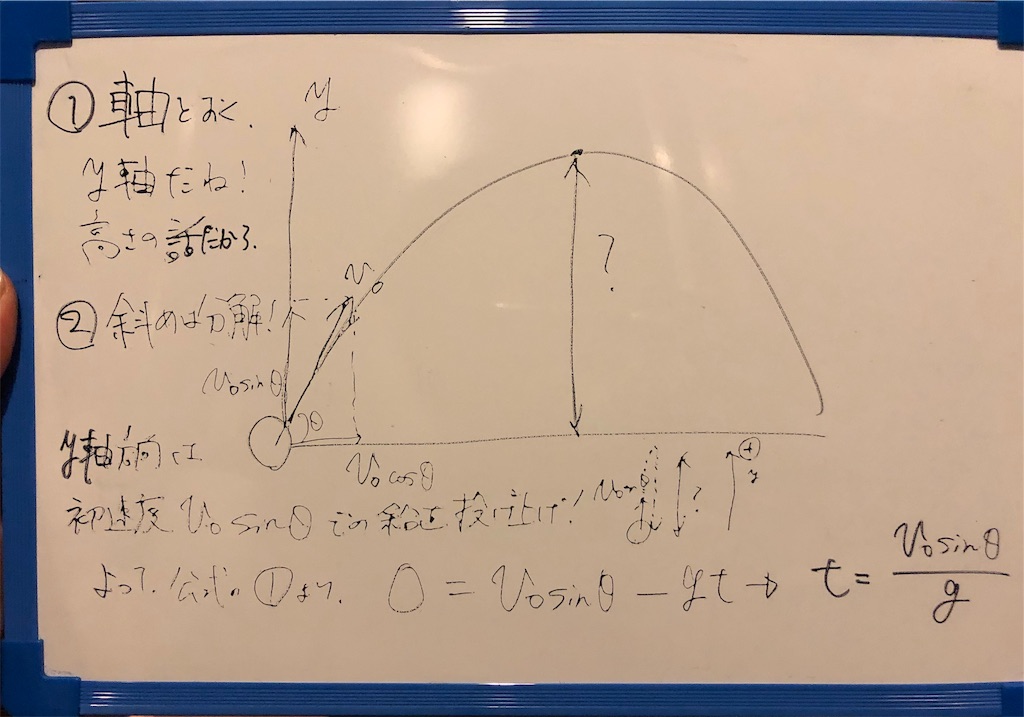 ① 軸とおく.
y軸だね!
高さの話だから.
② 斜めは分解!
y
v₀
?
v₀sinθ
θ
v₀cosθ
y軸方向は
初速度 v₀sinθ での鉛直投げ上げ!
v₀sinθ
?
⊕
y
よって. 公式 ①より. 0 = v₀sinθ − gt → t = v₀sinθ/g